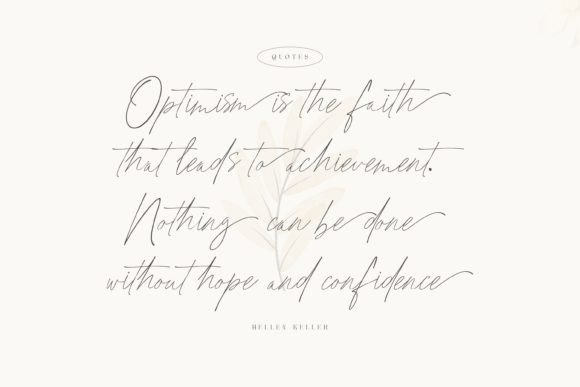 QUOTES
Optimism is the faith
that leads to achievement.
Nothing can be done
without hope and confidence
HELLEY KELLER